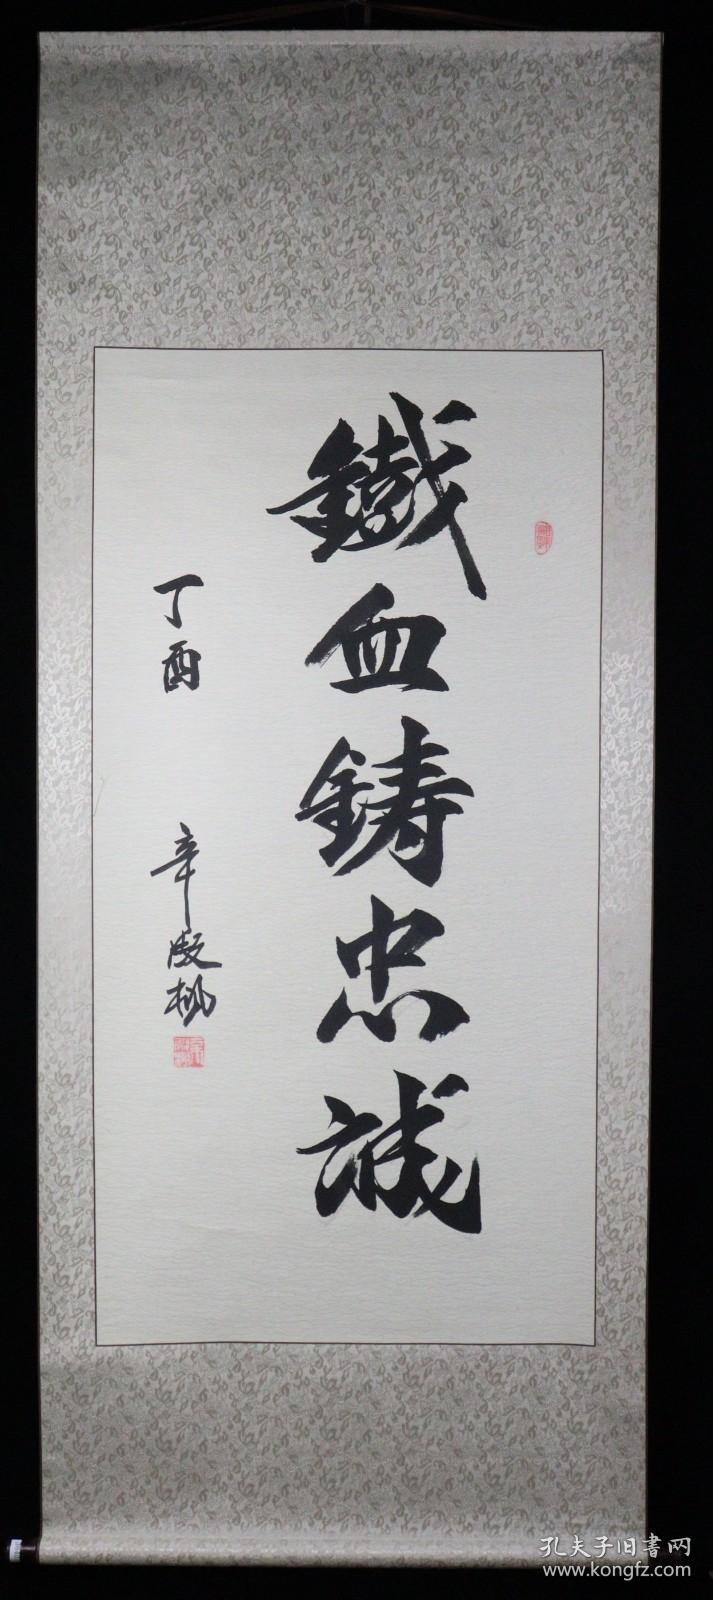 鐵血鋳忠誠
丁酉
辛殿楓
孔夫子旧書网
www.kongfz.com